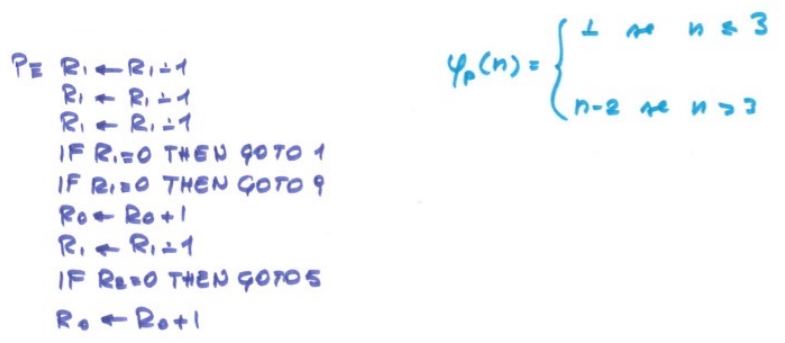 P≡ R₁ ← R₁ ∸ 1
R₁ ← R₁ ∸ 1
R₁ ← R₁ ∸ 1
IF R₁=0 THEN GOTO 1
IF R₁=0 THEN GOTO 9
R₀ ← R₀+1
R₁ ← R₁ ∸ 1
IF R₂=0 THEN GOTO 5
R₀ ← R₀+1
φₚ(n) = { ⊥ se n ≤ 3
n-2 se n > 3